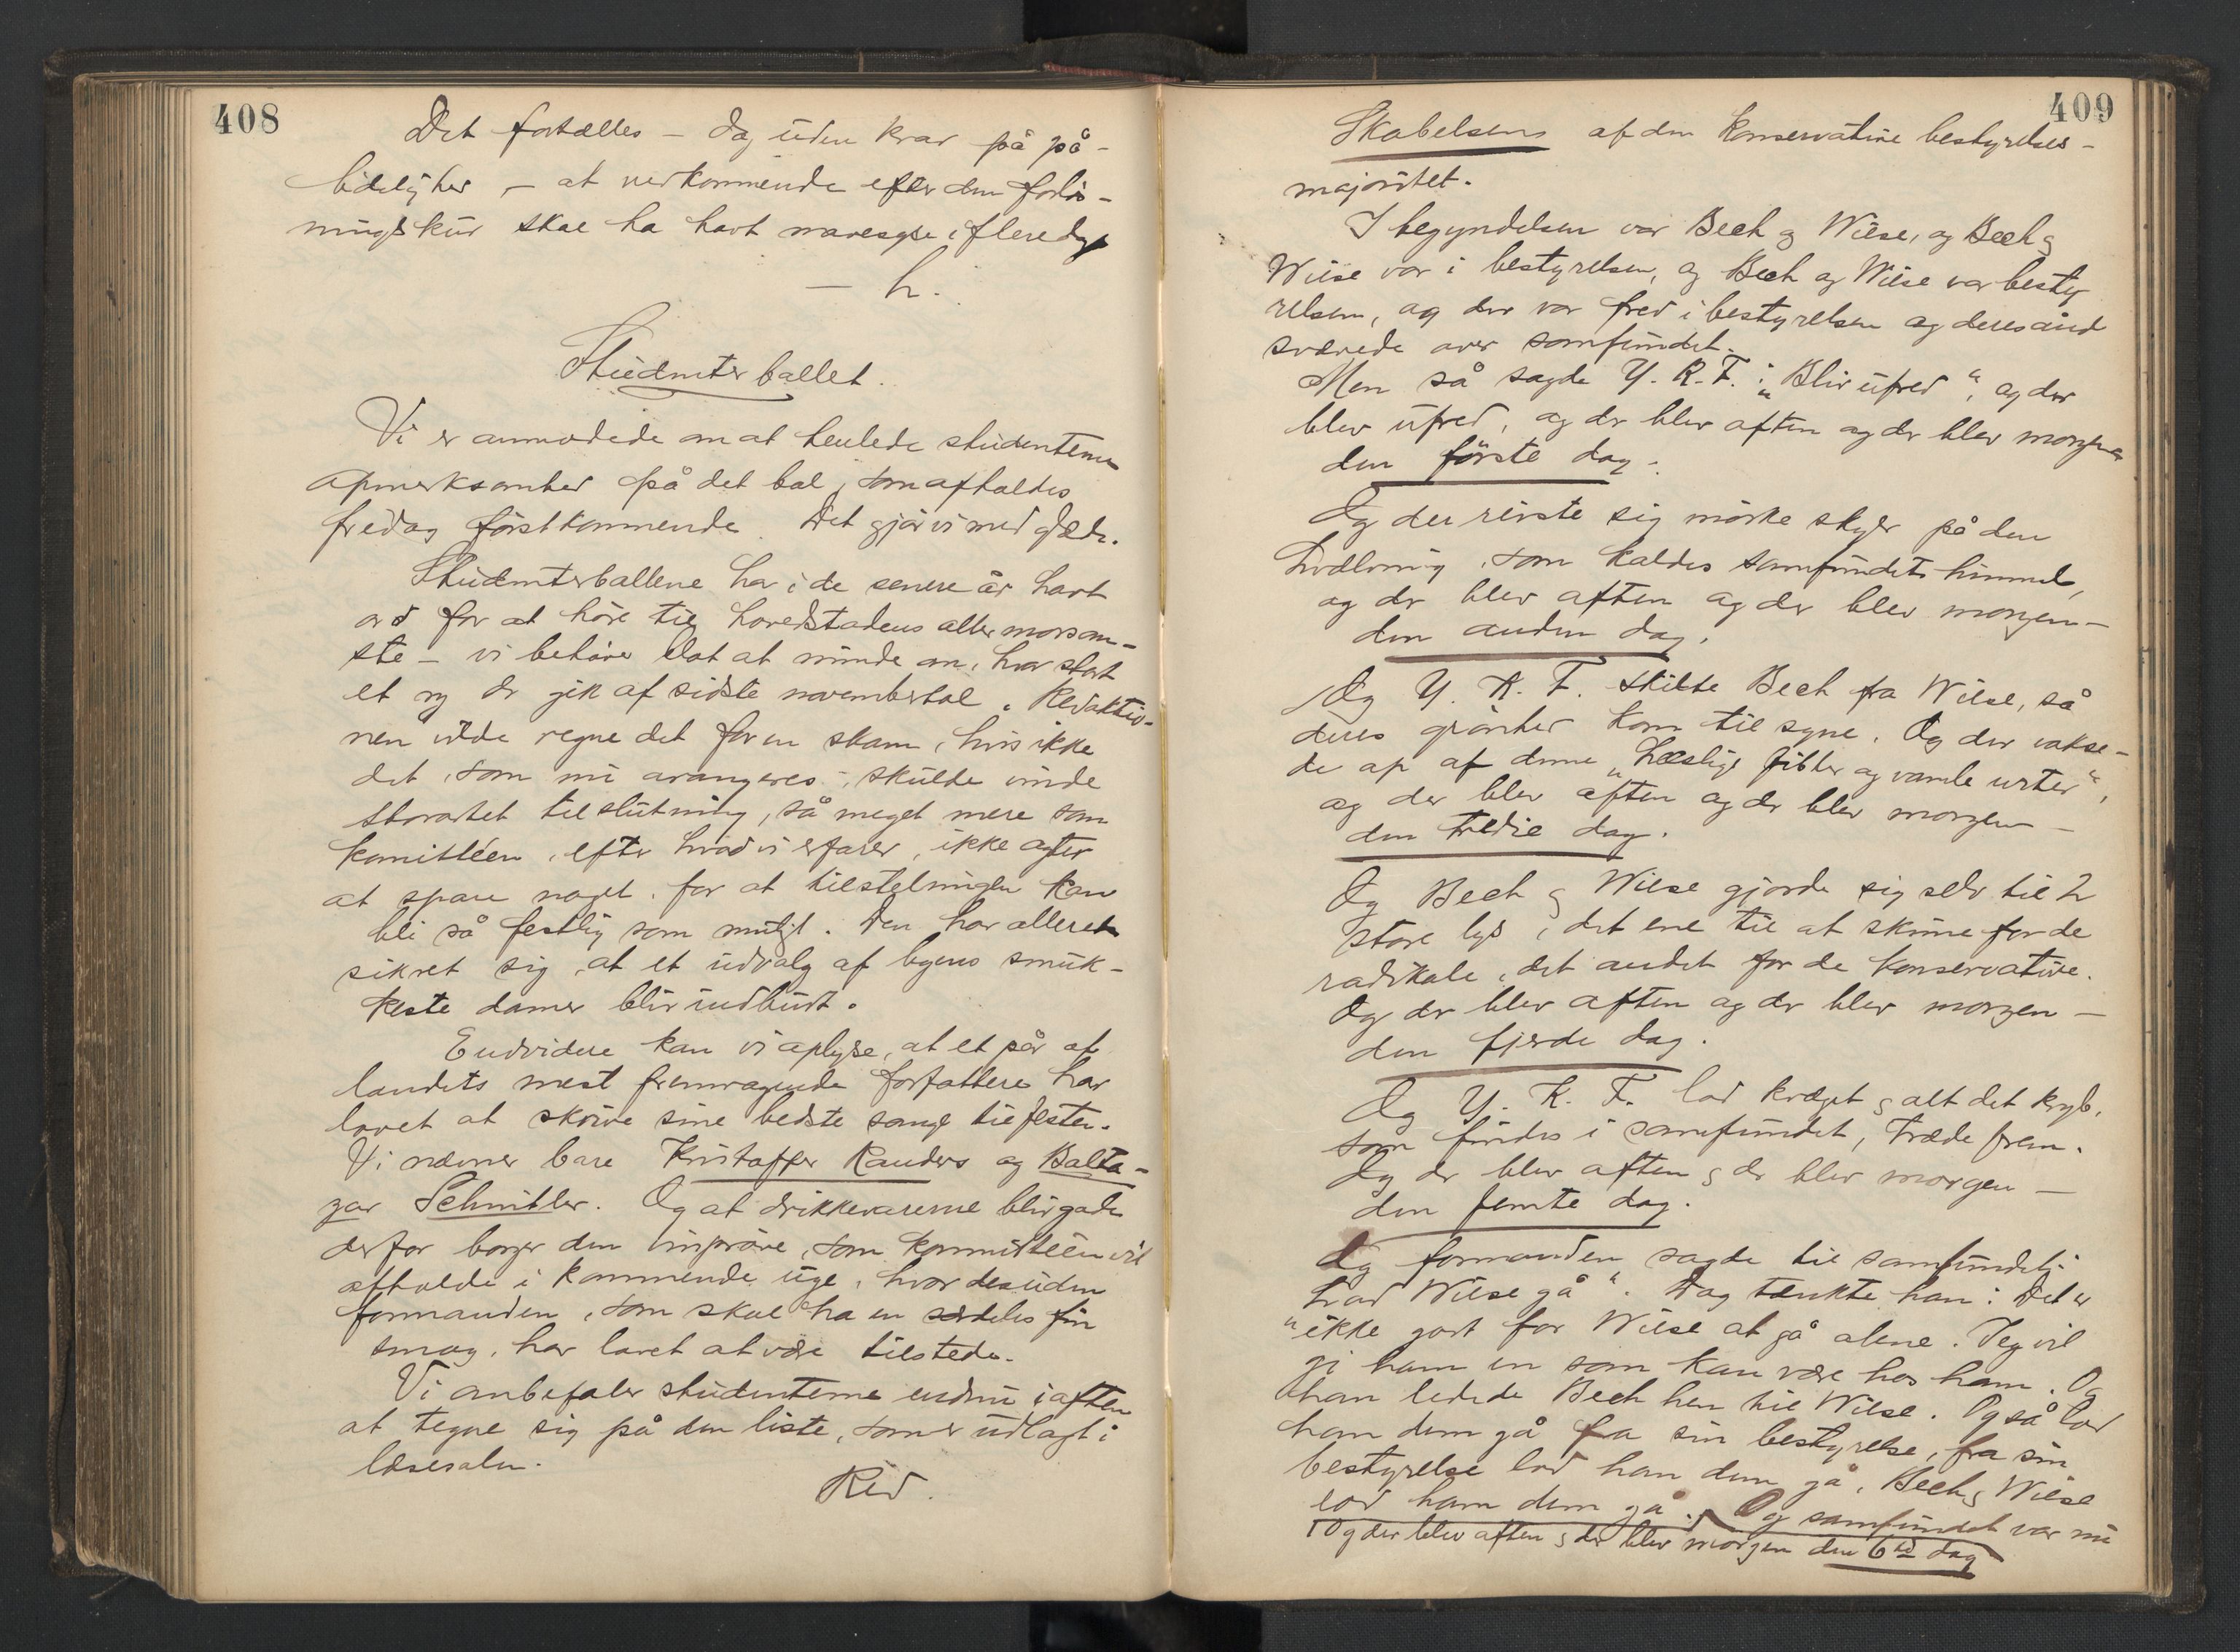 408
Det fortælles – dog uden krav på på-
lidelighet, – at vedkommende efter den forlø-
sningskur skal ha havt mavesyge i flere dage
– h.
Studenterballet.
Vi er anmodede om at henlede studenternes
opmerksomhed på det bal, som afholdes
fredag førstkommende. Det gjør vi med glæde.
Studenterballene har i de senere år havt
ord for at høre til hovedstadens aller morsom-
ste – vi behøver blot at minde om, hvor stort
et ry der gik af sidste novemberbal. Redaktio-
nen vilde regne det for en skam, hvis ikke
det, som nu arangeres, skulde vinde
storartet tilslutning, så meget mere som
komittéen, efter hvad vi erfarer, ikke agter
at spare noget for at tilstelningen kan
bli så festlig som muligt. Den har allerede
sikret sig, at et udvalg af byens smuk-
keste damer blir indbudt.
Endvidere kan vi oplyse, at et par af
landets mest fremragende forfattere har
lovet at skrive sine bedste sange til festen.
Vi nævner bare Kristoffer Randers og Balta-
zar Schnitler. Og at drikkevarerne blir gode
derfor borger den vinprøve, som kommittéen vil
afholde i kommende uge, hvor desuden
formanden, som skal ha en særdeles fin
smag, har lovet at være tilstede.
Vi anbefaler studenterne endnu iaften
at tegne sig på den liste, som er udlagt i
læsesalen.
Red.
409
Skabelsens af den konservative bestyrelses-
majoritet.
I begyndelsen var Bech og Wiese, og Bech og
Wiese var i bestyrelsen, og Bech og Wiese var besty
relsen, og der var fred i bestyrelsen og deres ånd
svævede over samfundet.
Men så sagde Y. K. F.: "Bliv ufred", og der
blev ufred, og der blev aften og der blev morgen
den første dag.
Og der reiste sig mørke skyer på den
hvælving, som kaldes samfundets himmel,
og der blev aften og der blev morgen –
den anden dag.
Og Y. K. F. skilte Bech fra Wiese, så
deres grønhed kom til syne. Og der vokse-
de op af denne "hæslige fibler og vamle urter",
og der blev aften og der blev morgen –
den tredie dag.
Og Bech og Wiese gjorde sig selv til 2
store lys, det ene til at skinne for de
radikale, det andet for de konservative.
Og der blev aften og der blev morgen –
den fjerde dag.
Og Y. K. F. lod kvæget og alt det kryb,
som findes i samfundet, træde frem.
Og der blev aften og der blev morgen –
den femte dag.
Og formanden sagde til samfundet:
"Lad Wiese gå". Dog tænkte han: Det er
ikke godt for Wiese at gå alene. Jeg vil
gi ham en som kan være hos ham. Og
han ledede Bech hen til Wiese. Og så lod
han dem gå fra sin bestyrelse, fra sin
bestyrelse lod han dem gå, Bech og Wiese
lod ham dem gå. Og samfundet var nu
Og der blev aften og der blev morgen den 6te dag